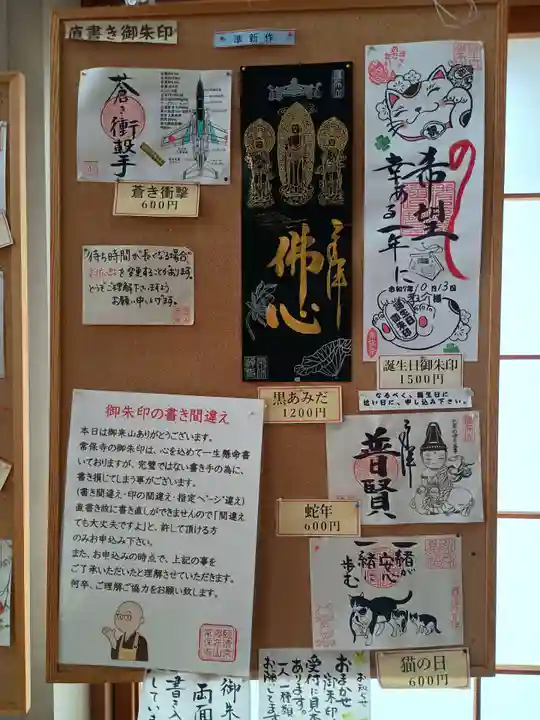 直書き御朱印
準新作
蒼き衝撃
蒼き衝撃
600円
"待ち時間が長くなる場合"
を変更することがあります。
どうぞご理解下さいますよう
お願い申し上げます。
御朱印の書き間違え
本日は御来山ありがとうございます。
常保寺の御朱印は、心を込めて一生懸命書
いておりますが、完璧ではない書き手の為に、
書き損じてしまう事がございます。
(書き間違え・印の間違え・指定ページ違え)
直書き故に書き直しができませんので「間違え
ても大丈夫ですよ」と、許して頂ける方
のみお申込み下さい。
また、お申込みの時点で、上記の事を
ご了承いただいたと理解させていただきます。
何卒、ご理解ご協力をお願い致します。
臨済宗
常保寺
佛心
黒あみだ
1200円
希望
の
幸ある一年に
令和7年10月13日
誕生日御朱印
誕生日御朱印
1500円
なるべく、誕生日に
近い日に、申し込み下さい。
普賢
蛇年
600円
一緒が
安心
一緒に
歩む
猫の日
600円
お知らせ
おまかせ
御朱印
受付に見本
あります。
一人一種類
お願いします
御朱
両面
書き入
しています